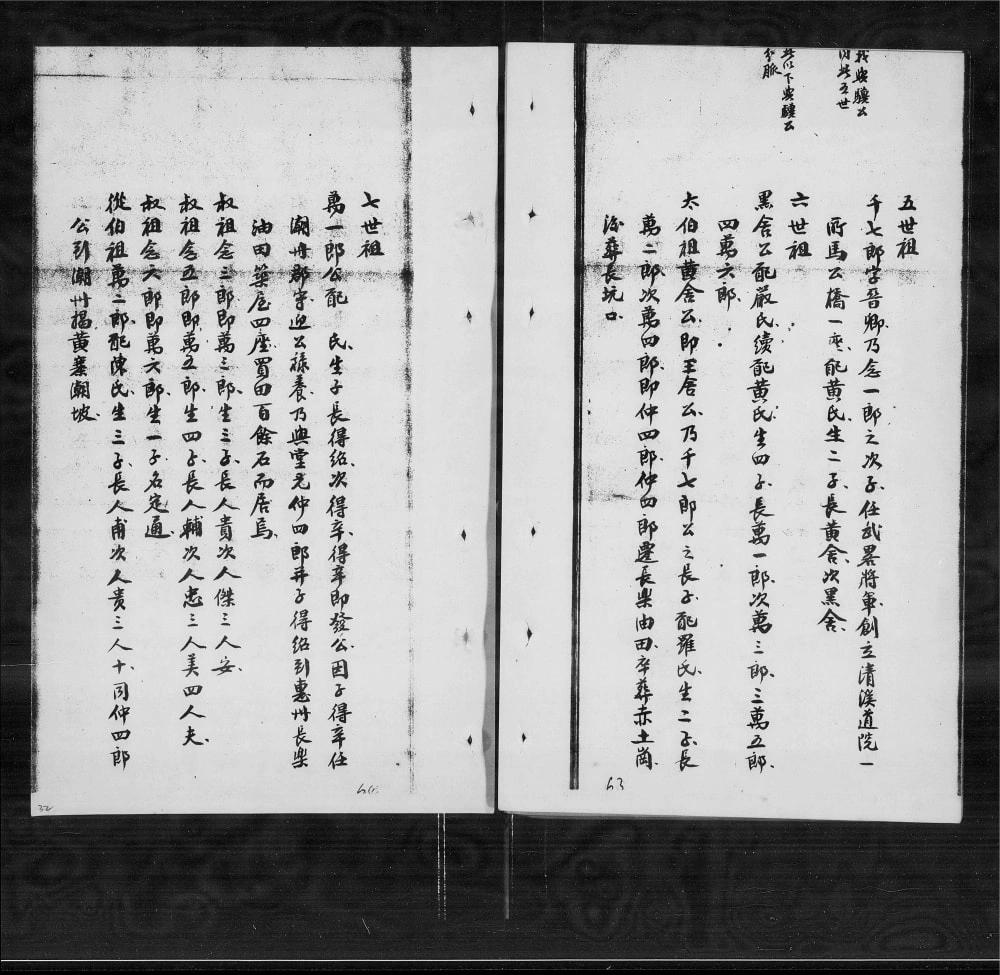 我與驥公
同此五世
此以下與驥公
分脈
五世祖
千七郎字晉卿乃念一郎之次子任武畧將軍創立清溪道院一
所馬公橋一座配黃氏生二子長黃舍次黑舍
六世祖
黑舍公配嚴氏續配黃氏生四子長萬一郎次萬三郎三萬五郎
四萬六郎
太伯祖黃舍公即王舍公乃千七郎公之長子配羅氏生二子長
萬二郎次萬四郎即仲四郎仲四郎遷長樂油田卒葬赤土崗
後葬長坑口
63
七世祖
萬一郎公配 氏生子長得紹次得辛得辛即發公因子得辛任
潮州郡宰迎公祿養乃與堂兄仲四郎并子得紹到惠州長樂
油田築屋四座買田百餘石而居焉
叔祖念三郎即萬三郎生三子長人貴次人傑三人安
叔祖念五郎即萬五郎生四子長人輔次人忠三人美四人夫
叔祖念六郎即萬六郎生一子名定通
從伯祖萬二郎配陳氏生三子長人甫次人貴三人十同仲四郎
公到潮州揭黃寨湖坡
64
32